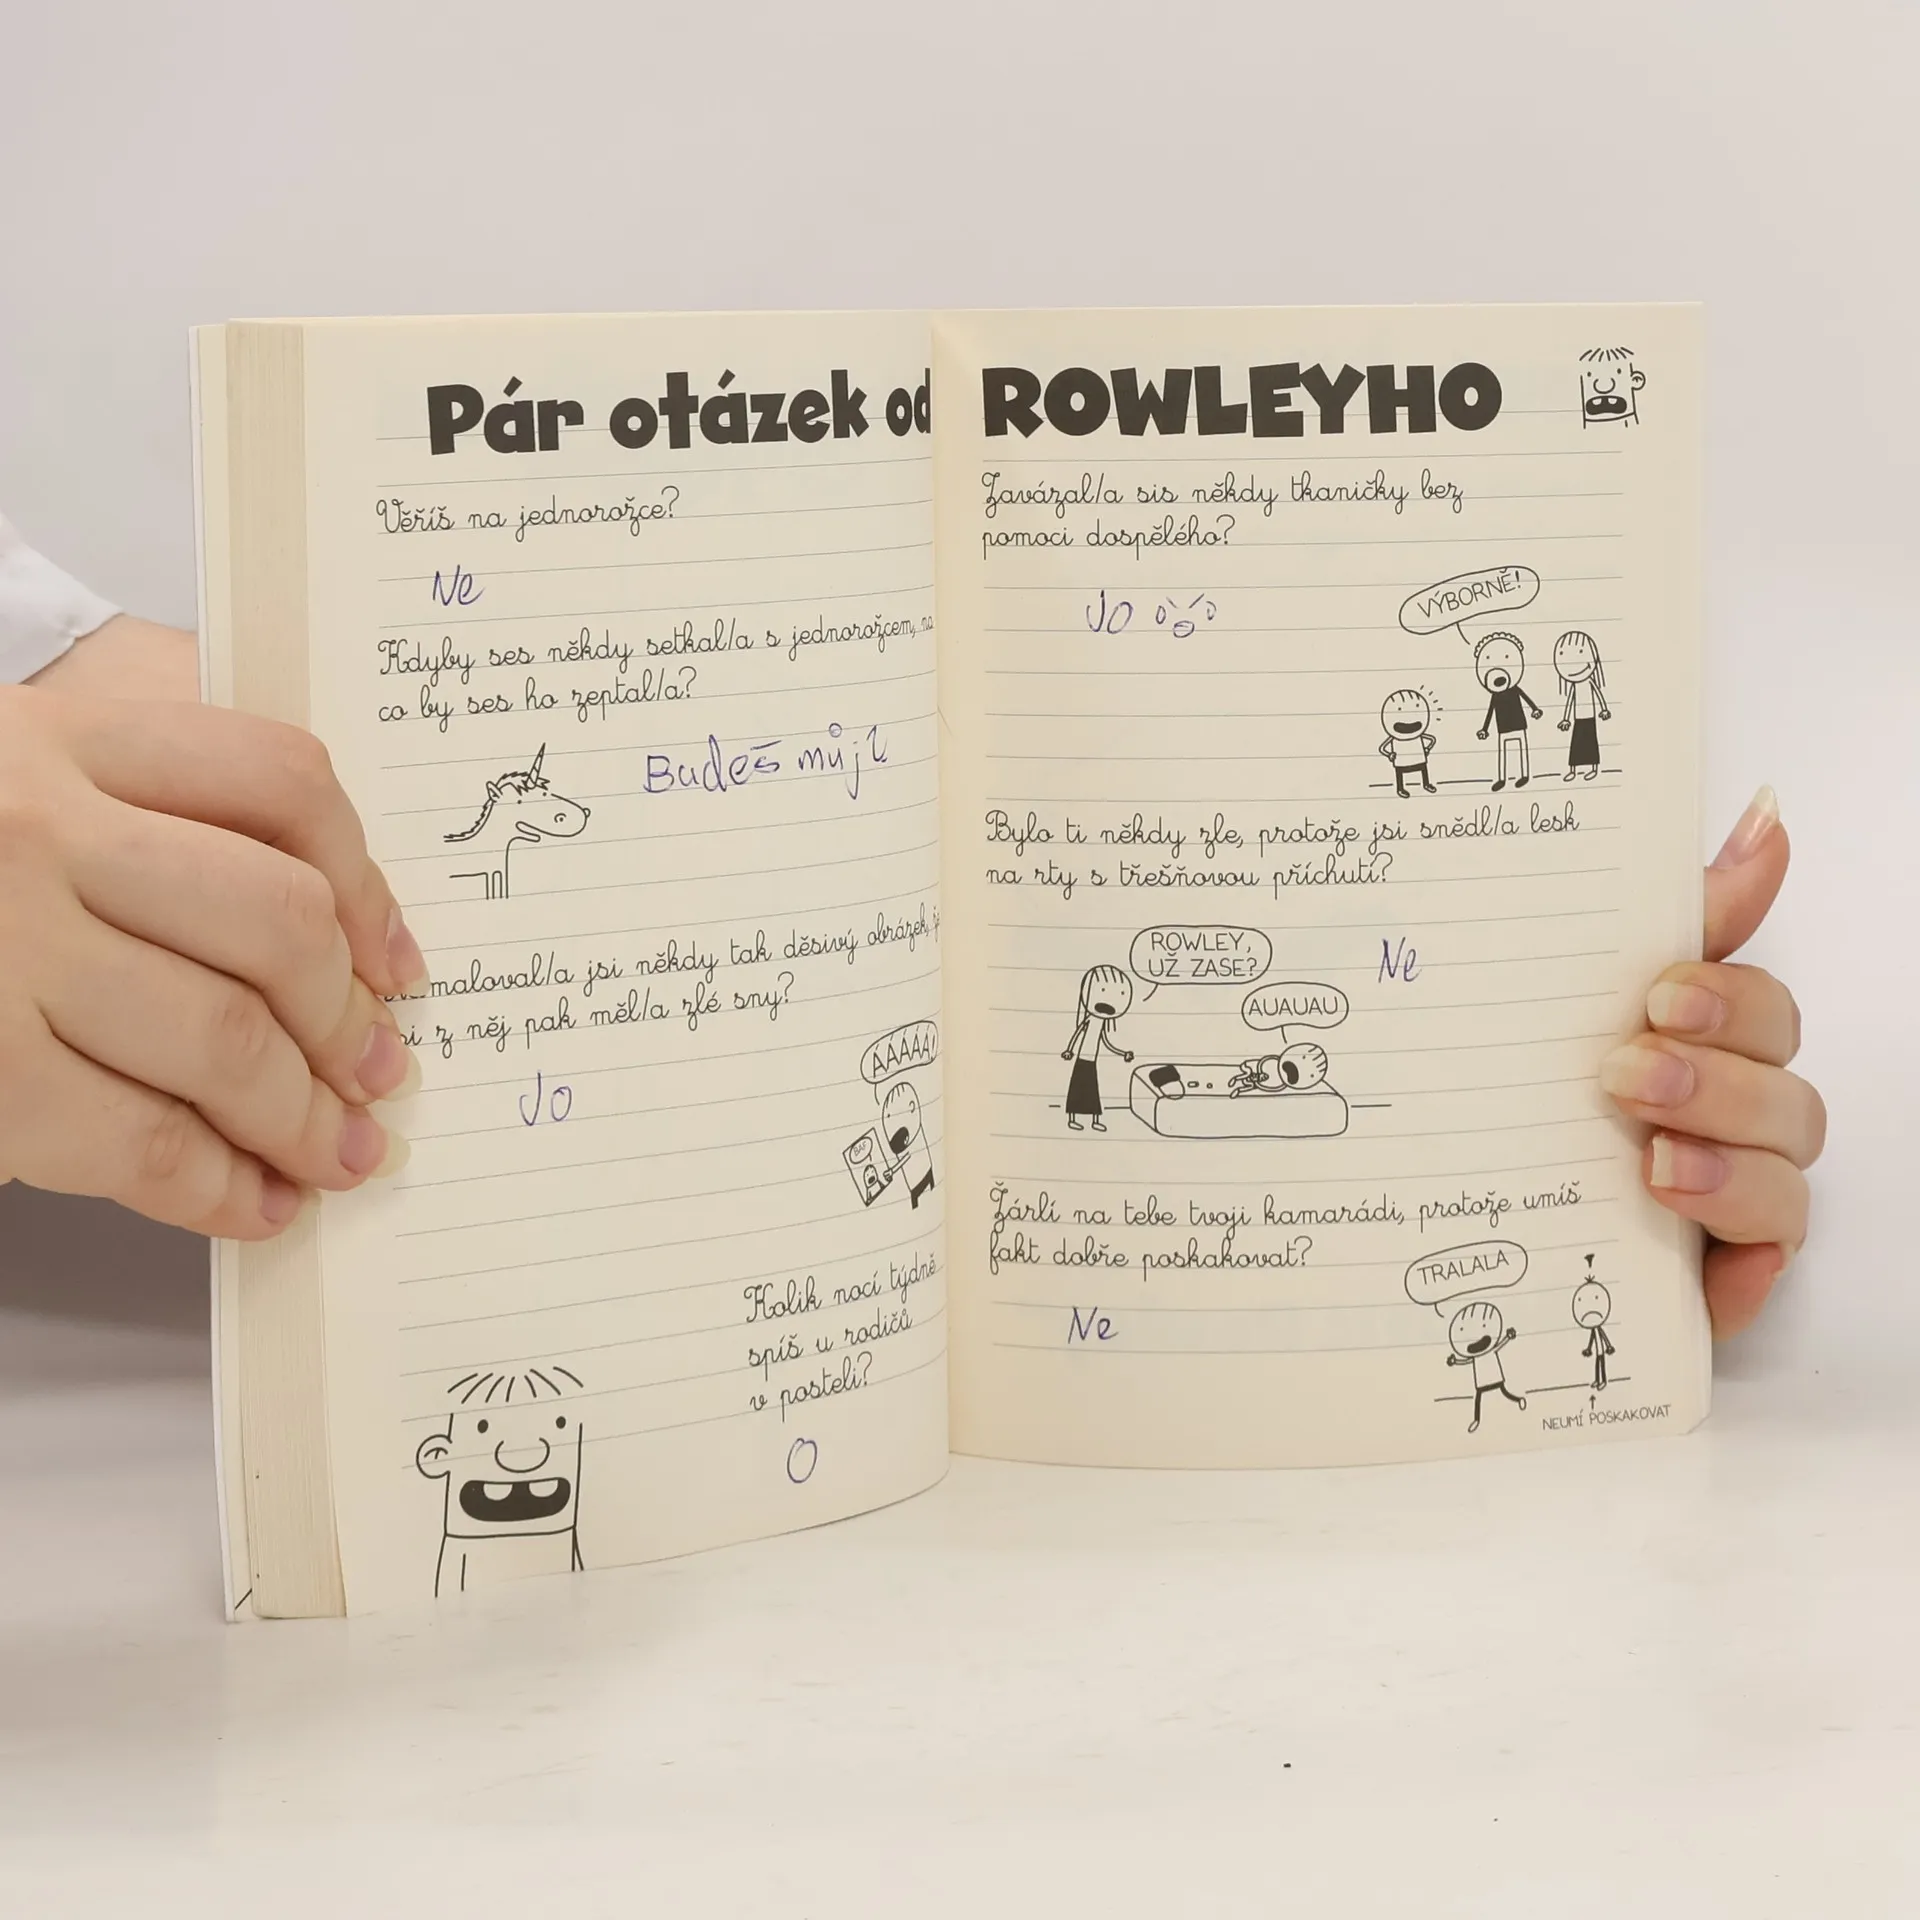 Pár otázek od ROWLEYHO
Věříš na jednorožce?
Ne
Kdyby ses někdy setkal/a s jednorožcem, na
co by ses ho zeptal/a?
Budeš můj?
maloval/a jsi někdy tak děsivý obrázek,
si z něj pak měl/a zlé sny?
Jo
ÁÁÁÁÁ!
BAF
Kolik nocí týdně
spíš u rodičů
v posteli?
0
Zavázal/a sis někdy tkaničky bez
pomoci dospělého?
Jo
VÝBORNĚ!
Bylo ti někdy zle, protože jsi snědl/a lesk
na rty s třešňovou příchutí?
ROWLEY,
UŽ ZASE?
Ne
AUAUAU
Žárlí na tebe tvoji kamarádi, protože umíš
fakt dobře poskakovat?
TRALALA
Ne
NEUMÍ POSKAKOVAT